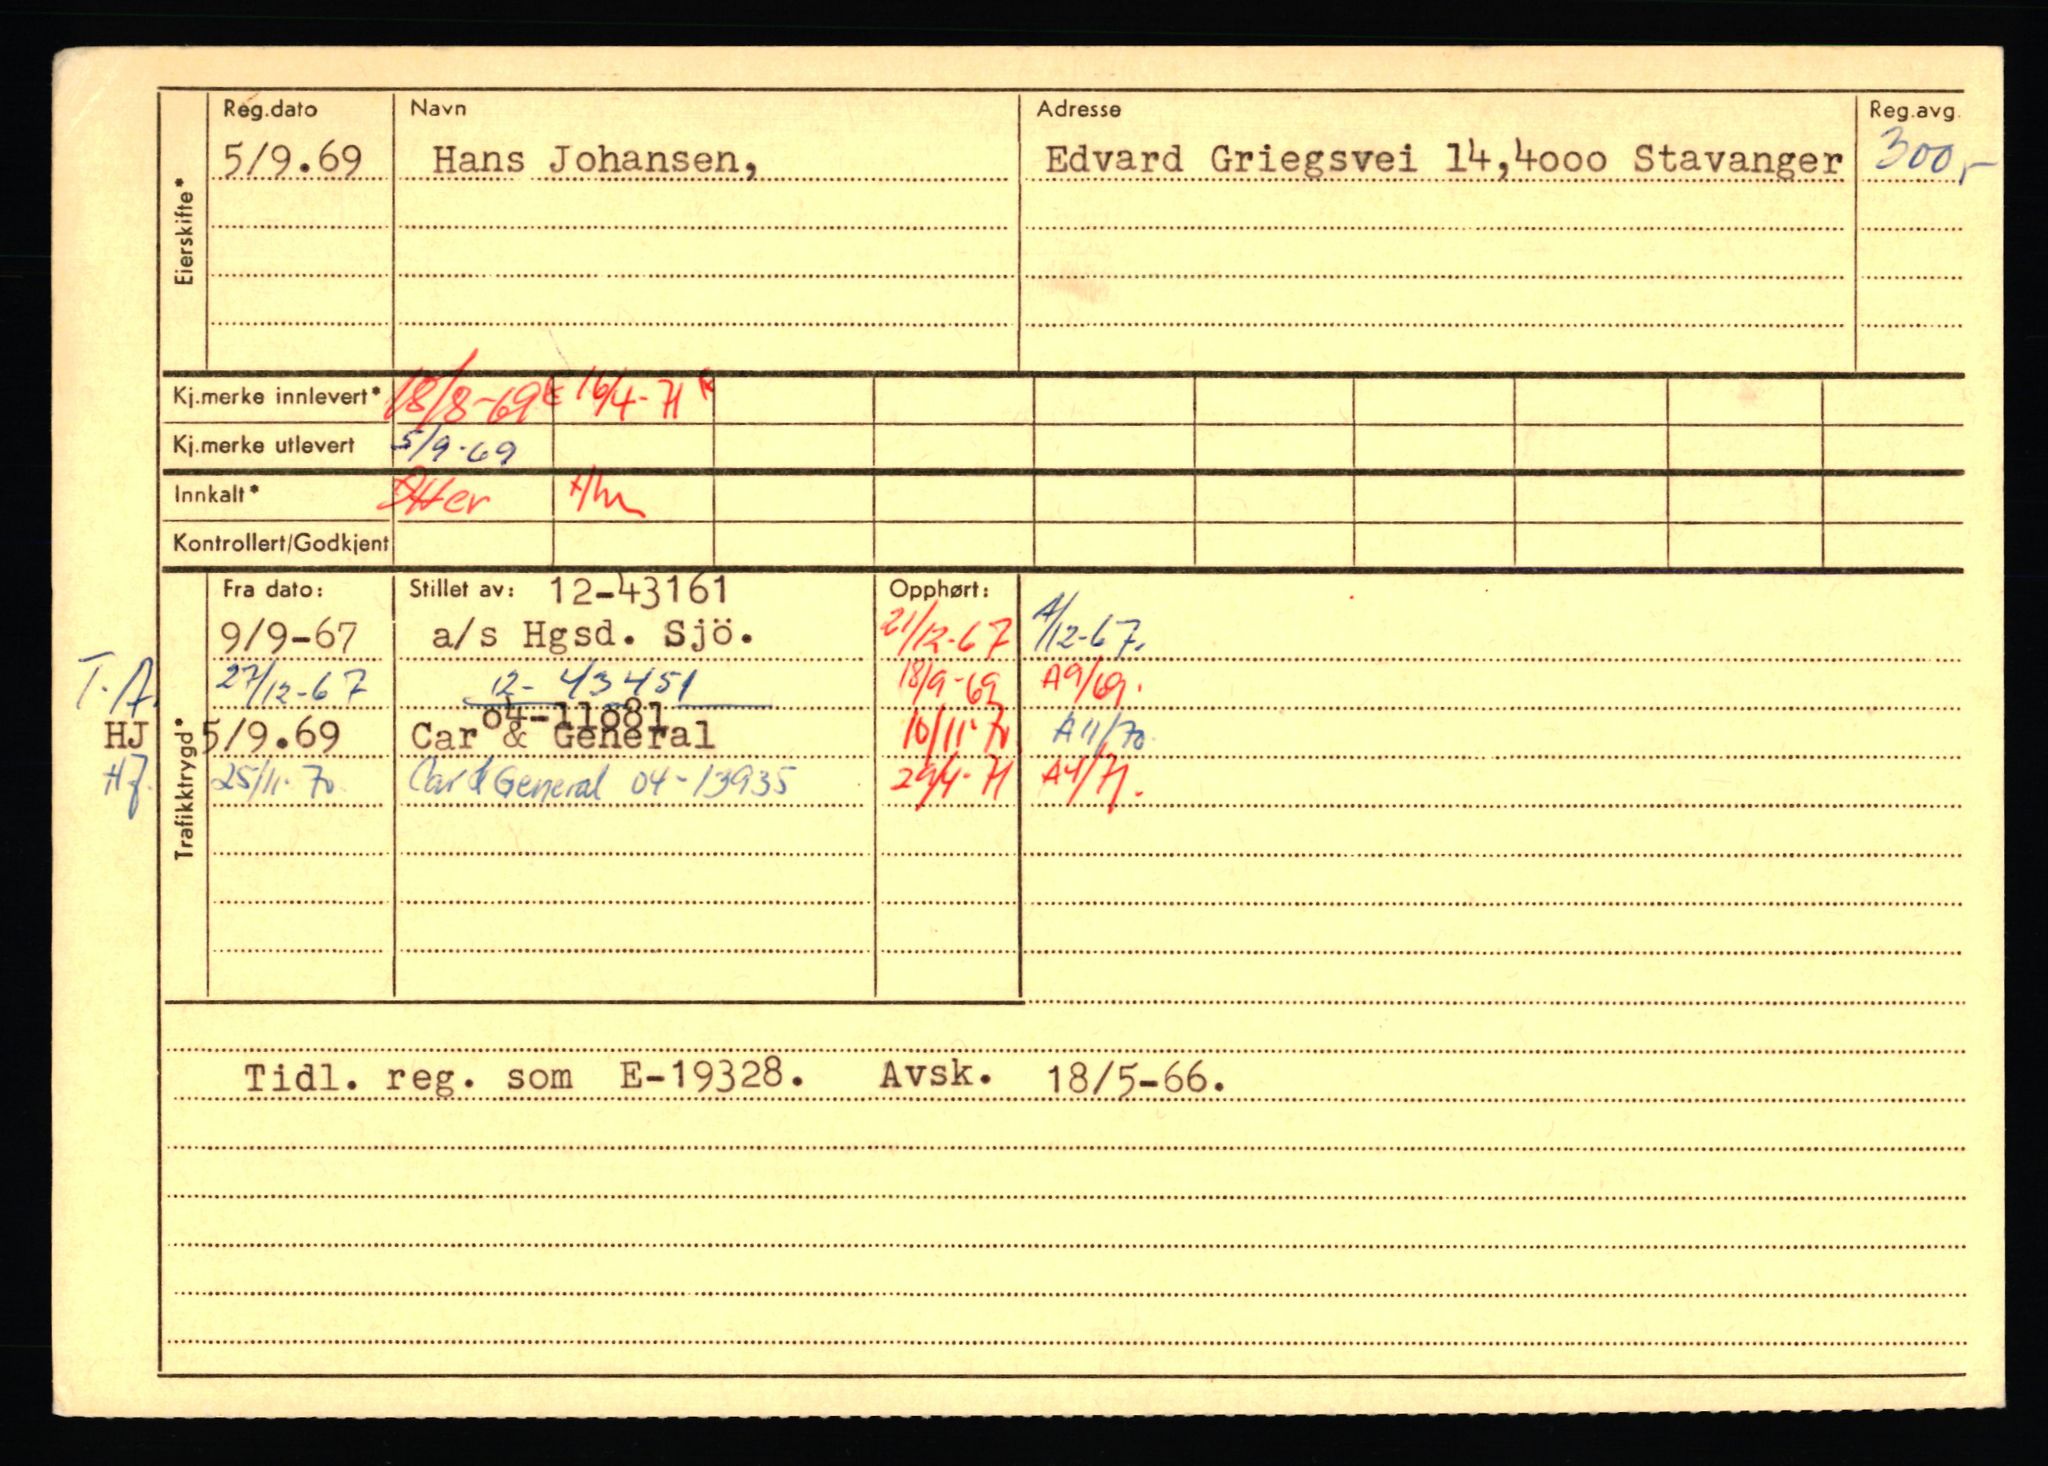 Reg.dato Navn Adresse Reg.avg.
5/9.69 Hans Johansen, Edvard Griegsvei 14,4ooo Stavanger 300,-
Eierskifte*
Kj.merke innlevert* 18/8-69 16/4-71
Kj.merke utlevert 5/9-69
Innkalt* Etter
Kontrollert/Godkjent
Fra dato: Stillet av: 12-43161 Opphørt:
9/9-67 a/s Hgsd. Sjö. 21/12-67 A/12-67.
T.A. 27/12-67 12-43451 18/9-69 A9/69.
o4-11o81
HJ 5/9.69 Car & General 10/11-70 A11/70
HJ. 25/11-70. Car & General 04-13935 29/4-71 A4/71.
Trafikktrygd*
Tidl. reg. som E-19328. Avsk. 18/5-66.